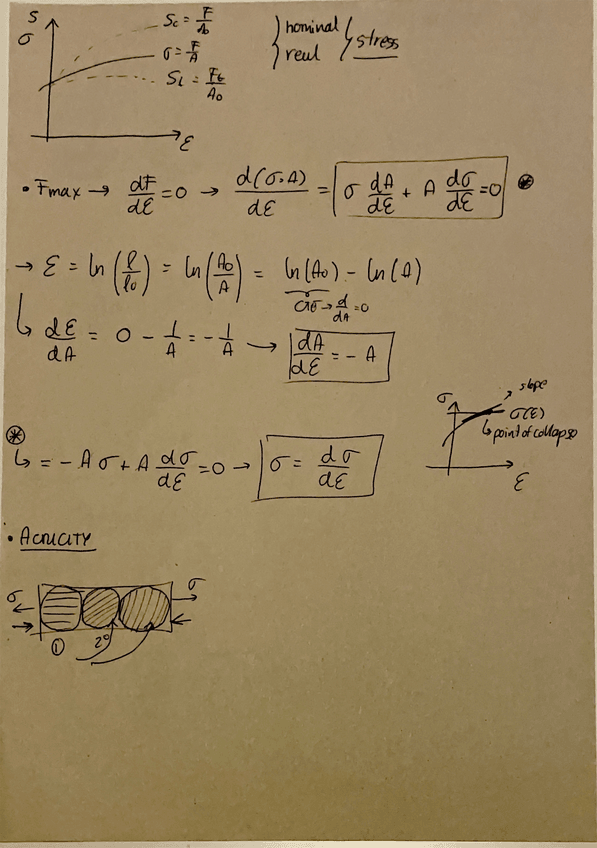 S
σ
S_c = F/A_0
σ = F/A
S_t = F_t/A_0
ε
nominal
real
stress
• Fmax → dF/dε = 0 → d(σ·A)/dε = σ dA/dε + A dσ/dε = 0 ⊛
→ ε = ln(l/l_0) = ln(A_0/A) = ln(A_0) - ln(A)
→ d/dA = 0
↳ dε/dA = 0 - 1/A = -1/A → dA/dε = - A
σ
slope
σ(ε)
↳ point of collapse
ε
⊛
↳ = - A σ + A dσ/dε = 0 → σ = dσ/dε
σ
σ
① 2°